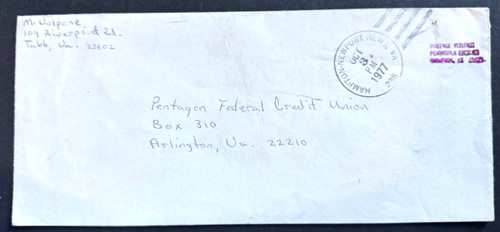 M. Volpone
109 Riverpoint Dr.
Tabb, Va. 23602
HAMPTON-NEWPORT NEWS, VA
OCT
3
PM
1977
236
POSTAGE VERIFIED
HAMPTON, VA
Pentagon Federal Credit Union
Box 310
Arlington, Va. 22210